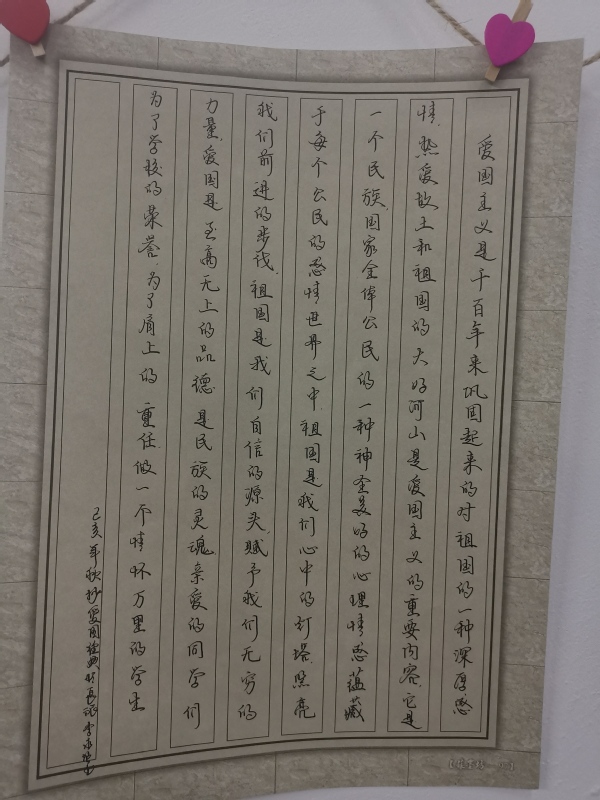 爱国主义是千百年来巩固起来的对祖国的一种深厚感
情,热爱故土和祖国的大好河山是爱国主义的重要内容它是
一个民族,国家全体公民的一种神圣美好的心理情感蕴藏
于每个公民的感情世界之中祖国是我们心中的灯塔.照亮
我们前进的步伐.祖国是我们自信的源头,赋予我们无穷的
力量,爱国是至高无上的品德是民族的灵魂亲爱的同学们
为了学校的荣誉,为了肩上的重任.做一个情怀万里的学生
己亥年秋抄爱国经典